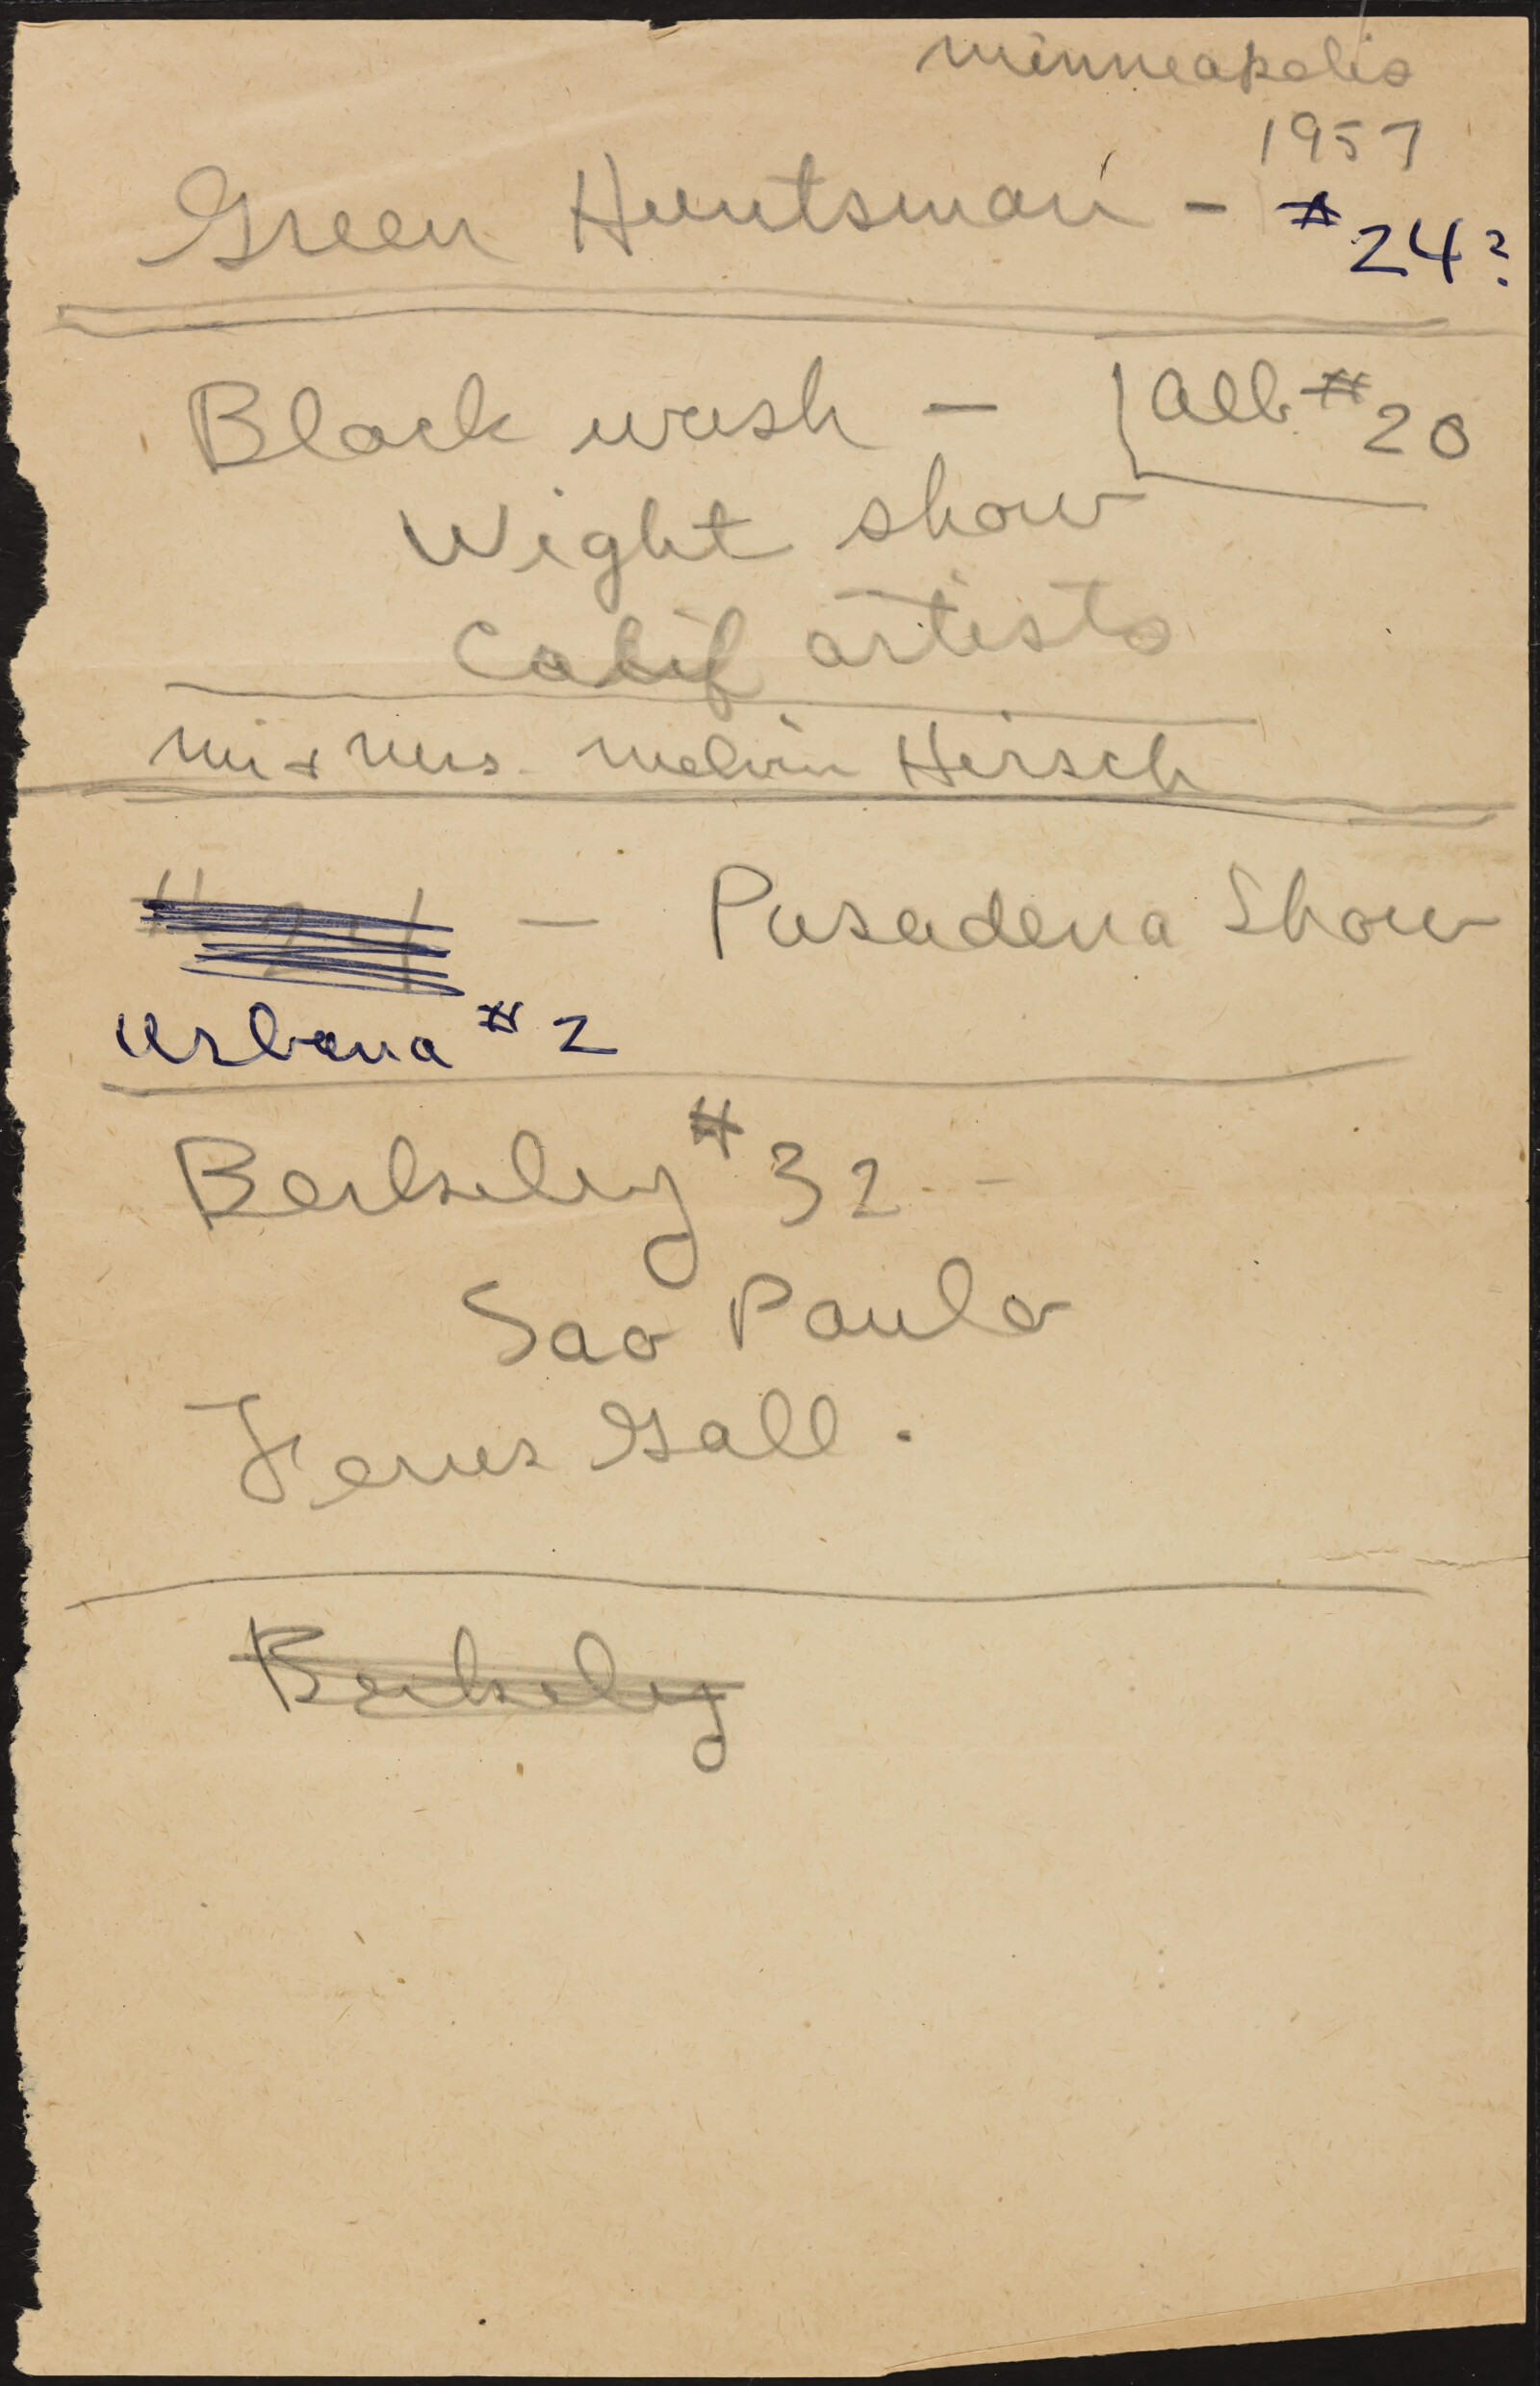 Minneapolis
1957
Green Huntsman - #24?
Black wash - Alb #20
Wight show
Calif artists
Mr + Mrs. Melvin Hirsch
- Pasadena Show
Urbana #2
Berkeley #32 -
Sao Paulo
Ferus Gall.
Berkeley